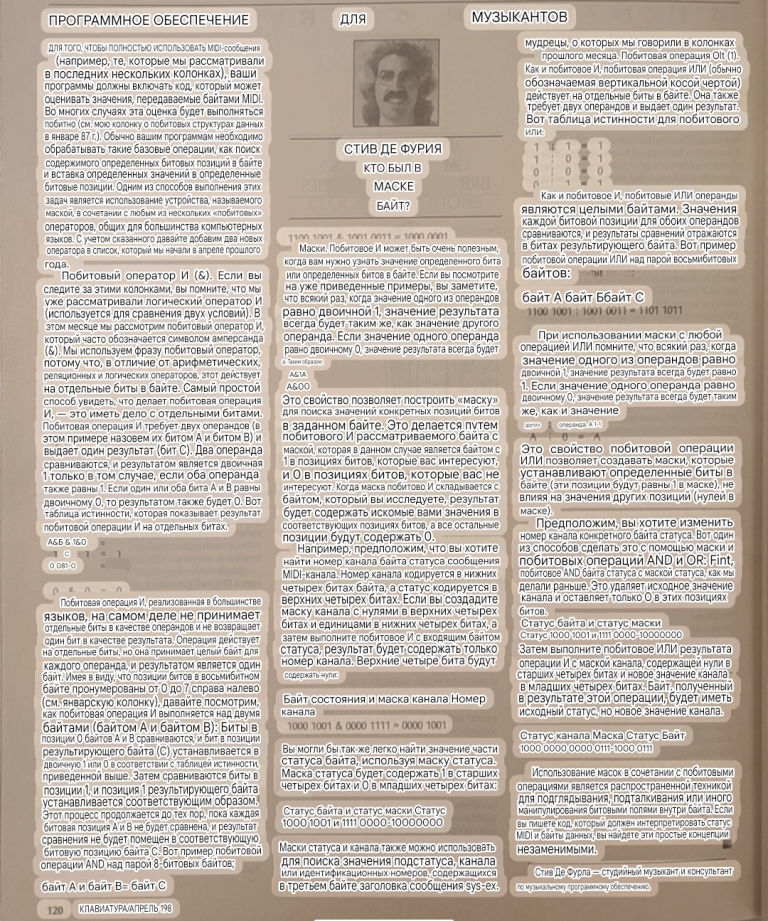 ПРОГРАММНОЕ ОБЕСПЕЧЕНИЕ ДЛЯ МУЗЫКАНТОВ
ДЛЯ ТОГО, ЧТОБЫ ПОЛНОСТЬЮ ИСПОЛЬЗОВАТЬ MIDI-сообщения
(например, те, которые мы рассматривали
в последних нескольких колонках), ваши
программы должны включать код, который может
оценивать значения, передаваемые байтами MIDI.
Во многих случаях эта оценка будет выполняться
побитно (см. мою колонку о побитовых структурах данных
в январе 87 г.). Обычно вашим программам необходимо
обрабатывать такие базовые операции, как поиск
содержимого определенных битовых позиций в байте
и вставка определенных значений в определенные
битовые позиции. Одним из способов выполнения этих
задач является использование устройства, называемого
маской, в сочетании с любым из нескольких «побитовых»
операторов, общих для большинства компьютерных
языков. С учетом сказанного давайте добавим два новых
оператора в список, который мы начали в апреле прошлого
года.
Побитовый оператор И (&). Если вы
следите за этими колонками, вы помните, что мы
уже рассматривали логический оператор И
(используется для сравнения двух условий). В
этом месяце мы рассмотрим побитовый оператор И,
который часто обозначается символом амперсанда
(&). Мы используем фразу побитовый оператор,
потому что, в отличие от арифметических,
реляционных и логических операторов, этот действует
на отдельные биты в байте. Самый простой
способ увидеть, что делает побитовая операция
И, — это иметь дело с отдельными битами.
Побитовая операция И требует двух операндов (в
этом примере назовем их битом А и битом В) и
выдает один результат (бит С). Два операнда
сравниваются, и результатом является двоичная
1 только в том случае, если оба операнда
также равны 1. Если один или оба бита А и В равны
двоичному 0, то результатом также будет 0. Вот
таблица истинности, которая показывает результат
побитовой операции И на отдельных битах.
А&Б & 1&0
1 С 1 = 1
0 081-0
0 & 0 = 0
Побитовая операция И, реализованная в большинстве
языков, на самом деле не принимает
отдельные биты в качестве операндов и не возвращает
один бит в качестве результата. Операция действует
на отдельные биты, но она принимает целый байт для
каждого операнда, и результатом является один
байт. Имея в виду, что позиции битов в восьмибитном
байте пронумерованы от 0 до 7 справа налево
(см. январскую колонку), давайте посмотрим,
как побитовая операция И выполняется над двумя
байтами (байтом А и байтом В): Биты в
позиции 0 байтов А и В сравниваются, и бит в позиции
результирующего байта (С) устанавливается в
двоичную 1 или 0 в соответствии с таблицей истинности,
приведенной выше. Затем сравниваются биты в
позиции 1, и позиция 1 результирующего байта
устанавливается соответствующим образом.
Этот процесс продолжается до тех пор, пока каждая
битовая позиция А и В не будет сравнена, и результат
сравнения не будет помещен в соответствующую
битовую позицию байта С. Вот пример побитовой
операции AND над парой 8-битовых байтов;
байт А и байт В= байт С
СТИВ ДЕ ФУРИЯ
КТО БЫЛ В
МАСКЕ
БАЙТ?
1100 1001 & 1001 0011 = 1000 0001
Маски. Побитовое И может быть очень полезным,
когда вам нужно узнать значение определенного бита
или определенных битов в байте. Если вы посмотрите
на уже приведенные примеры, вы заметите,
что всякий раз, когда значение одного из операндов
равно двоичной 1, значение результата
всегда будет таким же, как значение другого
операнда. Если значение одного операнда
равно двоичному 0, значение результата всегда будет
0. Таким образом:
А&1А
А&ОО
Это свойство позволяет построить «маску»
для поиска значений конкретных позиций битов
в заданном байте. Это делается путем
побитового И рассматриваемого байта с
маской, которая в данном случае является байтом с
1 в позициях битов, которые вас интересуют,
и 0 в позициях битов, которые вас не
интересуют. Когда маска побитово И складывается с
байтом, который вы исследуете, результат
будет содержать искомые вами значения в
соответствующих позициях битов, а все остальные
позиции будут содержать 0.
Например, предположим, что вы хотите
найти номер канала байта статуса сообщения
MIDI-канала. Номер канала кодируется в нижних
четырех битах байта, а статус кодируется в
верхних четырех битах. Если вы создадите
маску канала с нулями в верхних четырех
битах и единицами в нижних четырех битах, а
затем выполните побитовое И с входящим байтом
статуса, результат будет содержать только
номер канала. Верхние четыре бита будут
содержать нули:
Байт состояния и маска канала Номер
канала
1000 1001 & 0000 1111 = 0000 1001
Вы могли бы так же легко найти значение части
статуса байта, используя маску статуса.
Маска статуса будет содержать 1 в старших
четырех битах и 0 в младших четырех битах:
Статус байта и статус маски Статус
1000 1001 и 1111 0000-10000000
Маски статуса и канала также можно использовать
для поиска значения подстатуса, канала
или идентификационных номеров, содержащихся
в третьем байте заголовка сообщения sys-ex.
мудрецы, о которых мы говорили в колонках
прошлого месяца. Побитовая операция Olt (1).
Как и побитовое И, побитовая операция ИЛИ (обычно
обозначаемая вертикальной косой чертой)
действует на отдельные биты в байте. Она также
требует двух операндов и выдает один результат.
Вот таблица истинности для побитового
или:
Как и побитовое И, побитовые ИЛИ операнды
являются целыми байтами. Значения
каждой битовой позиции для обоих операндов
сравниваются, и результаты сравнения отражаются
в битах результирующего байта. Вот пример
побитовой операции ИЛИ над парой восьмибитовых
байтов:
байт А байт Ббайт С
1100 1001 : 1001 0011 = 1101 1011
При использовании маски с любой
операцией ИЛИ помните, что всякий раз, когда
значение одного из операндов равно
двоичной 1, значение результата всегда будет равно
1. Если значение одного операнда равно
двоичному 0, значение результата всегда будет таким
же, как и значение
другого операнда. А 1-1
А | 0 = А
Это свойство побитовой операции
ИЛИ позволяет создавать маски, которые
устанавливают определенные биты в
байте (эти позиции будут равны 1 в маске), не
влияя на значения других позиций (нулей в
маске).
Предположим, вы хотите изменить
номер канала конкретного байта статуса. Вот один
из способов сделать это с помощью маски и
побитовых операций AND и OR: Fint,
побитовое AND байта статуса с маской статуса, как мы
делали раньше. Это удаляет исходное значение
канала и оставляет только 0 в этих позициях
битов.
Статус байта и статус маски
Статус 1000 1001 и 1111 0000-10000000
Затем выполните побитовое ИЛИ результата
операции И с маской канала, содержащей нули в
старших четырех битах и новое значение канала
в младших четырех битах. Байт, полученный
в результате этой операции, будет иметь
исходный статус, но новое значение канала.
Статус канала Маска Статус Байт
1000 0000 0000 0111-1000 0111
Использование масок в сочетании с побитовыми
операциями является распространенной техникой
для подглядывания, подталкивания или иного
манипулирования битовыми полями внутри байта. Если
вы пишете код, который должен интерпретировать статус
MIDI и байты данных, вы найдете эти простые концепции
незаменимыми.
Стив Де Фурла — студийный музыкант и консультант
по музыкальному программному обеспечению.
120 КЛАВИАТУРА/АПРЕЛЬ 198